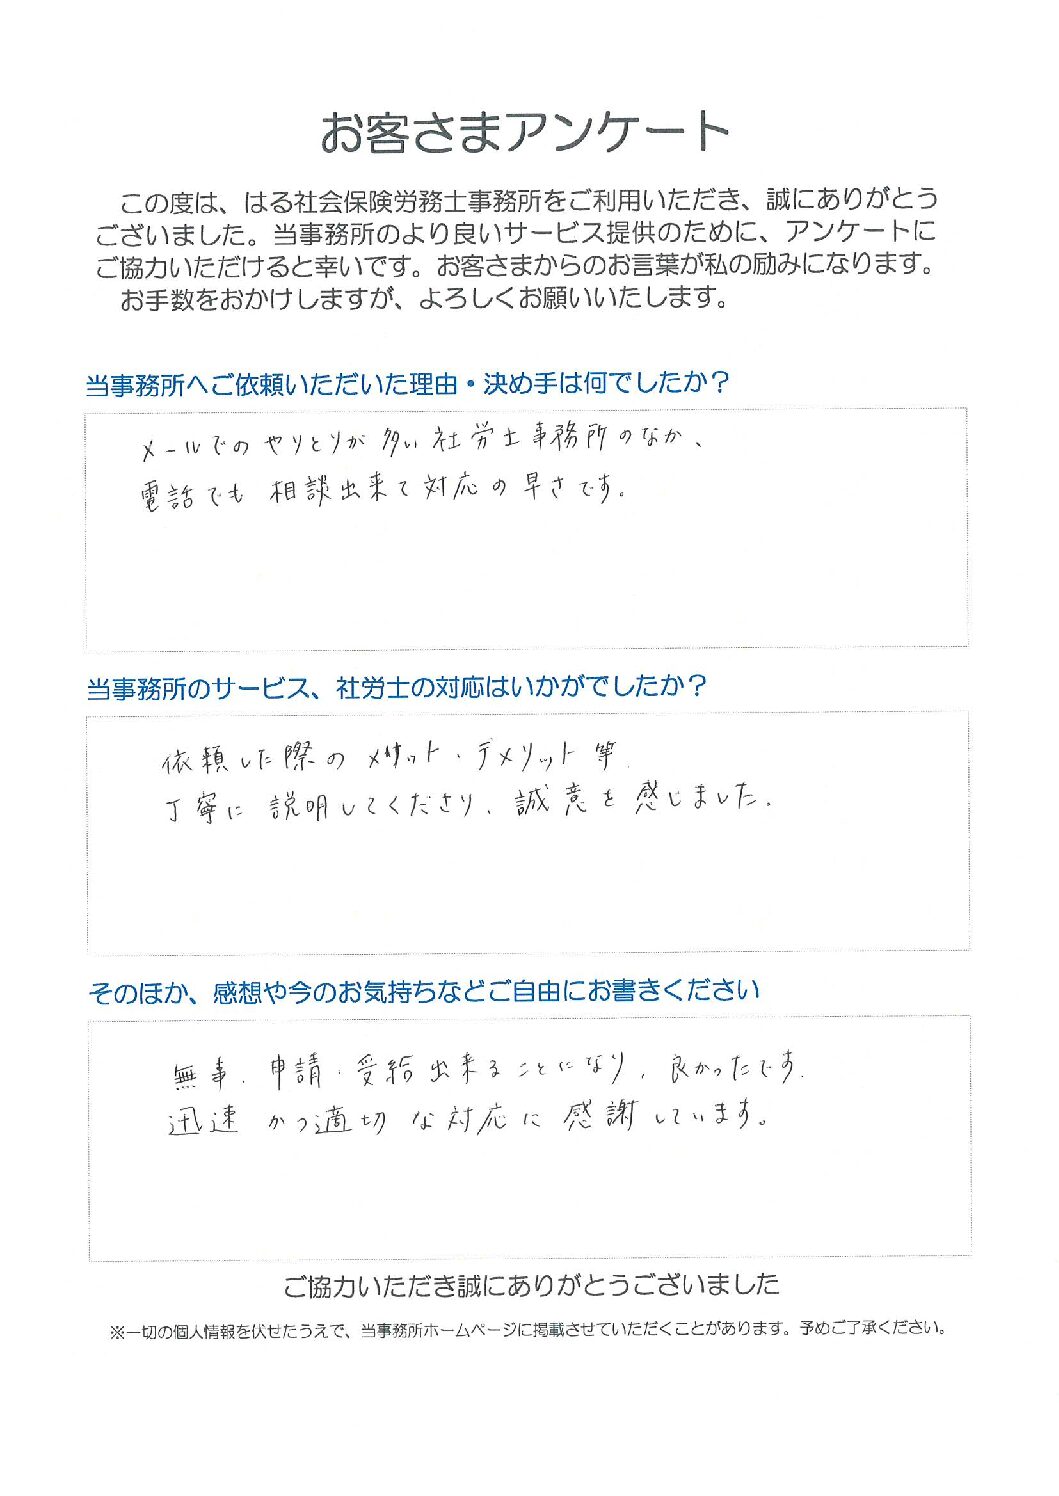 お客さまアンケート
この度は、はる社会保険労務士事務所をご利用いただき、誠にありがとう
ございました。当事務所のより良いサービス提供のために、アンケートに
ご協力いただけると幸いです。お客さまからのお言葉が私の励みになります。
お手数をおかけしますが、よろしくお願いいたします。
当事務所へご依頼いただいた理由・決め手は何でしたか？
メールでのやりとりが多い社労士事務所のなか、
電話でも相談出来て対応の早さです。
当事務所のサービス、社労士の対応はいかがでしたか？
依頼した際のメリット・デメリット等、
丁寧に説明してくださり、誠意を感じました。
そのほか、感想や今のお気持ちなどご自由にお書きください
無事、申請・受給出来ることになり、良かったです。
迅速かつ適切な対応に感謝しています。
ご協力いただき誠にありがとうございました
※一切の個人情報を伏せたうえで、当事務所ホームページに掲載させていただくことがあります。予めご了承ください。